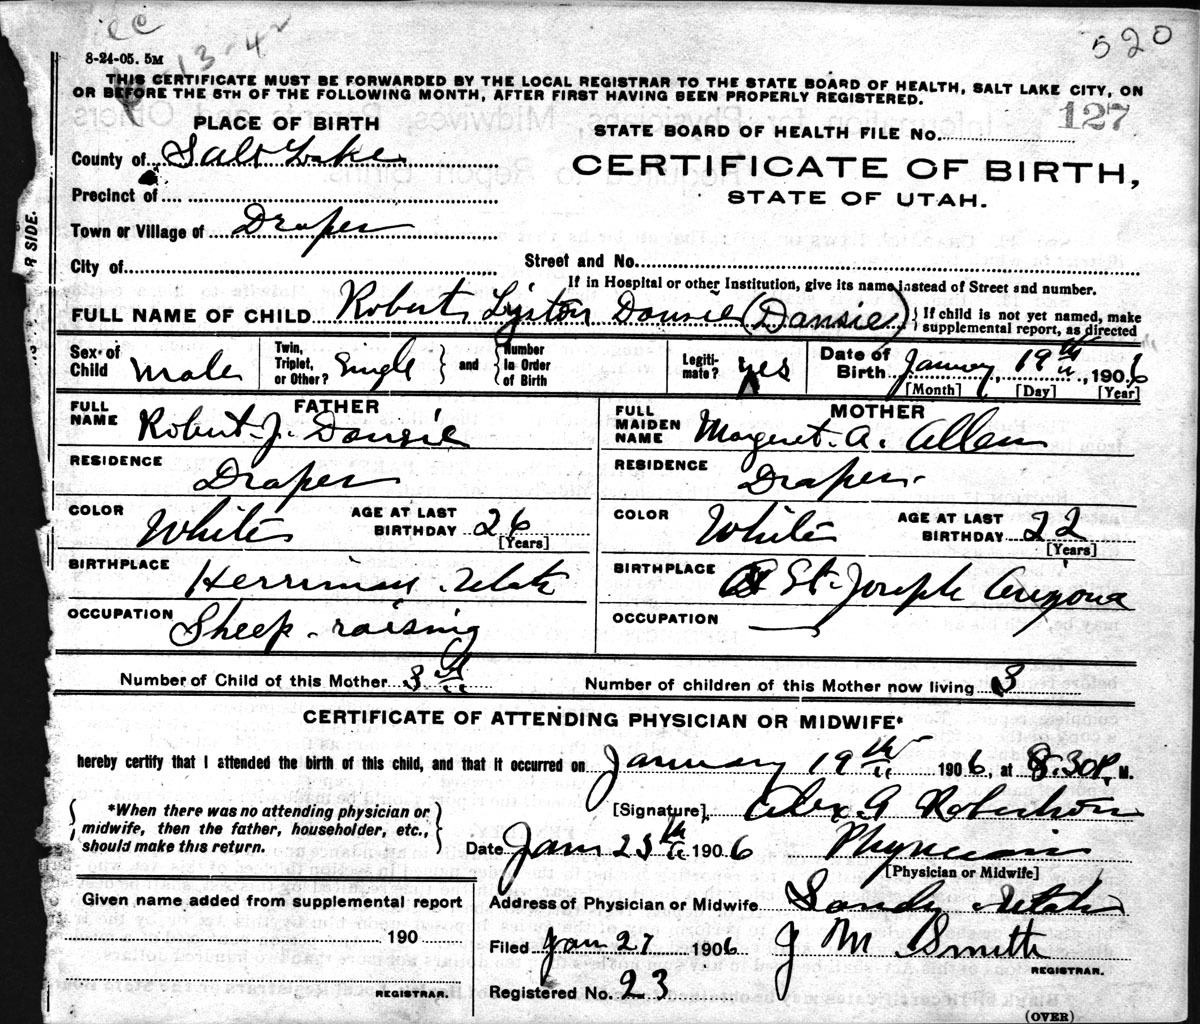 520
8-24-05. 5M
THIS CERTIFICATE MUST BE FORWARDED BY THE LOCAL REGISTRAR TO THE STATE BOARD OF HEALTH, SALT LAKE CITY, ON
OR BEFORE THE 5TH OF THE FOLLOWING MONTH, AFTER FIRST HAVING BEEN PROPERLY REGISTERED.
PLACE OF BIRTH
STATE BOARD OF HEALTH FILE NO. 127
County of Salt Lake
CERTIFICATE OF BIRTH,
Precinct of
STATE OF UTAH.
Town or Village of Draper
City of
Street and No.
If in Hospital or other Institution, give its name instead of Street and number.
FULL NAME OF CHILD Robert Dansie (Dansie) } If child is not yet named, make supplemental report, as directed
Sex of Child Male
Twin, Triplet, or Other? Single } and { Number in Order of Birth
Legitimate? yes
Date of Birth January, 19th, 1906
[Month] [Day] [Year]
FATHER
FULL NAME Robert. J. Dansie
RESIDENCE Draper
COLOR White AGE AT LAST BIRTHDAY 26 [Years]
BIRTHPLACE Herriman. Utah
OCCUPATION Sheep-raising
MOTHER
FULL MAIDEN NAME Margret. A. Allen
RESIDENCE Draper.
COLOR White AGE AT LAST BIRTHDAY 22 [Years]
BIRTHPLACE St. Joseph Arizona
OCCUPATION —
Number of Child of this Mother 3rd
Number of children of this Mother now living 3
CERTIFICATE OF ATTENDING PHYSICIAN OR MIDWIFE*
hereby certify that I attended the birth of this child, and that it occurred on January 19th 1906, at 8.30 P. M.
{ *When there was no attending physician or midwife, then the father, householder, etc., should make this return. }
[Signature], Alex. A Robertson
Date Jan 25th 1906 Physician
[Physician or Midwife]
Given name added from supplemental report
190
REGISTRAR.
Address of Physician or Midwife Sandy Utah
Filed Jan 27 1906 J M Smith
REGISTRAR.
Registered No. 23
(OVER)
R SIDE.